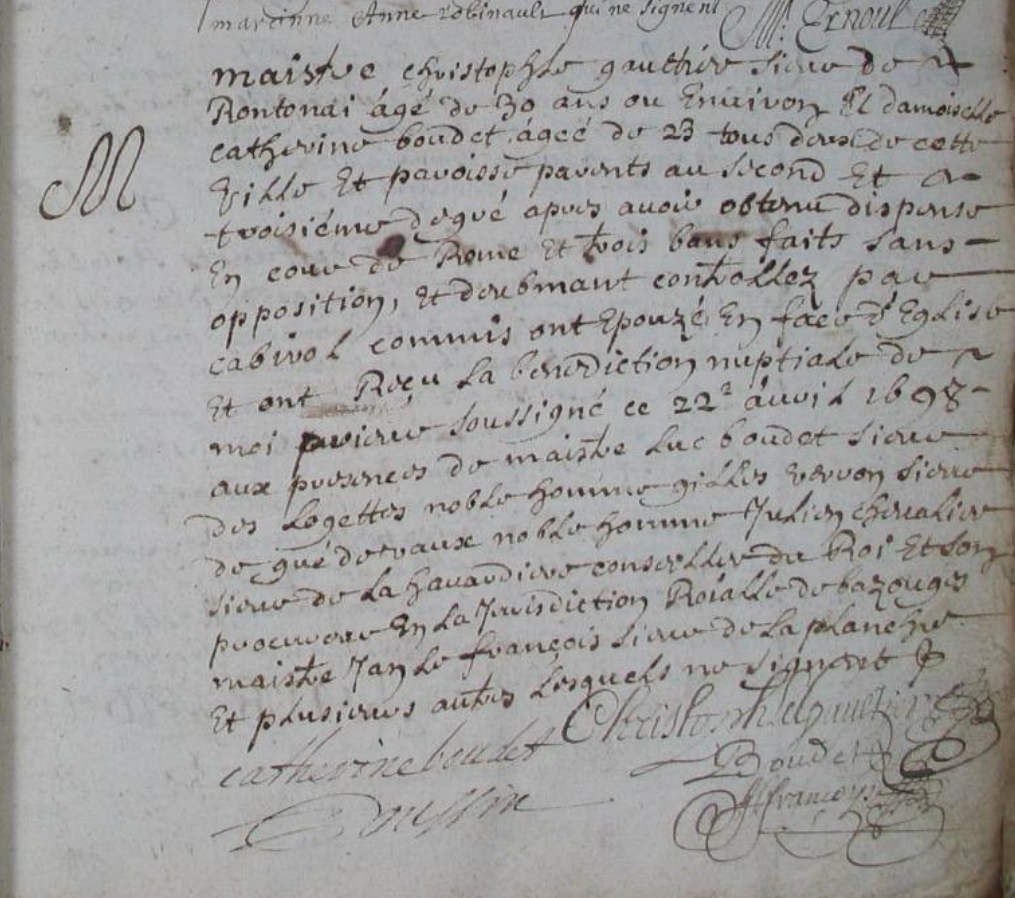 marcinne Anne Robinault qui ne signent Mr. Ernoul
M
maistre christophle gauthier sieur de
Rontonai ágé de 30 ans ou Enuiron Et damoiselle
catherine boudet ágeé de 23 tous deux de cette
Ville Et paroisse parents au second Et
troisiéme degré apres auoir obtenu dispense
En cour de Rome Et trois bans faits sans
opposition, Et deubmant controllez par
cabirol commis ont Epouzé En face d'Eglise
Et ont Reçu la benediction nuptiale de
moi prieur soussigné ce 22e áuril 1698
aux presences de maistre Luc boudet sieur
des Logettes noble homme gilles verron sieur
de gué de vaux noble homme Julien cheualier
sieur de La hauardiere conseiller du Roi Et son
procureur En La Jurisdiction Roialle de bazouges
maistre Jan Le françois sieur de La planche
Et plusieurs autres Lesquels ne signent
Christophle gaultier
catherine boudet
Boudet
Loussin
Jfrançoys